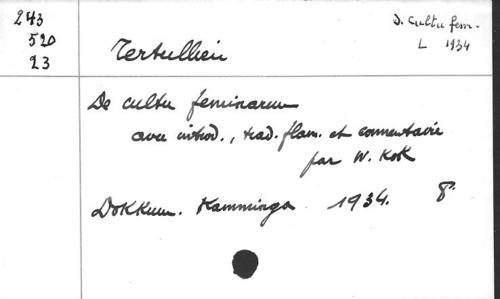 243
520
23
D. Cultu fem.
L 1934
Tertullien
De cultu feminarum
avec introd., trad. flam. et commentaire
par W. Kok
Dokkum. Kamminga 1934. 8°.